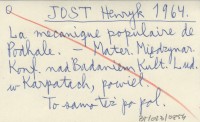 JOST Henryk 1964.
La mécanique populaire de
Podhale. – Mater. Międzynar.
Konf. nad Badaniem Kult. Lud.
w Karpatach, powiel.
To samo też po pol.